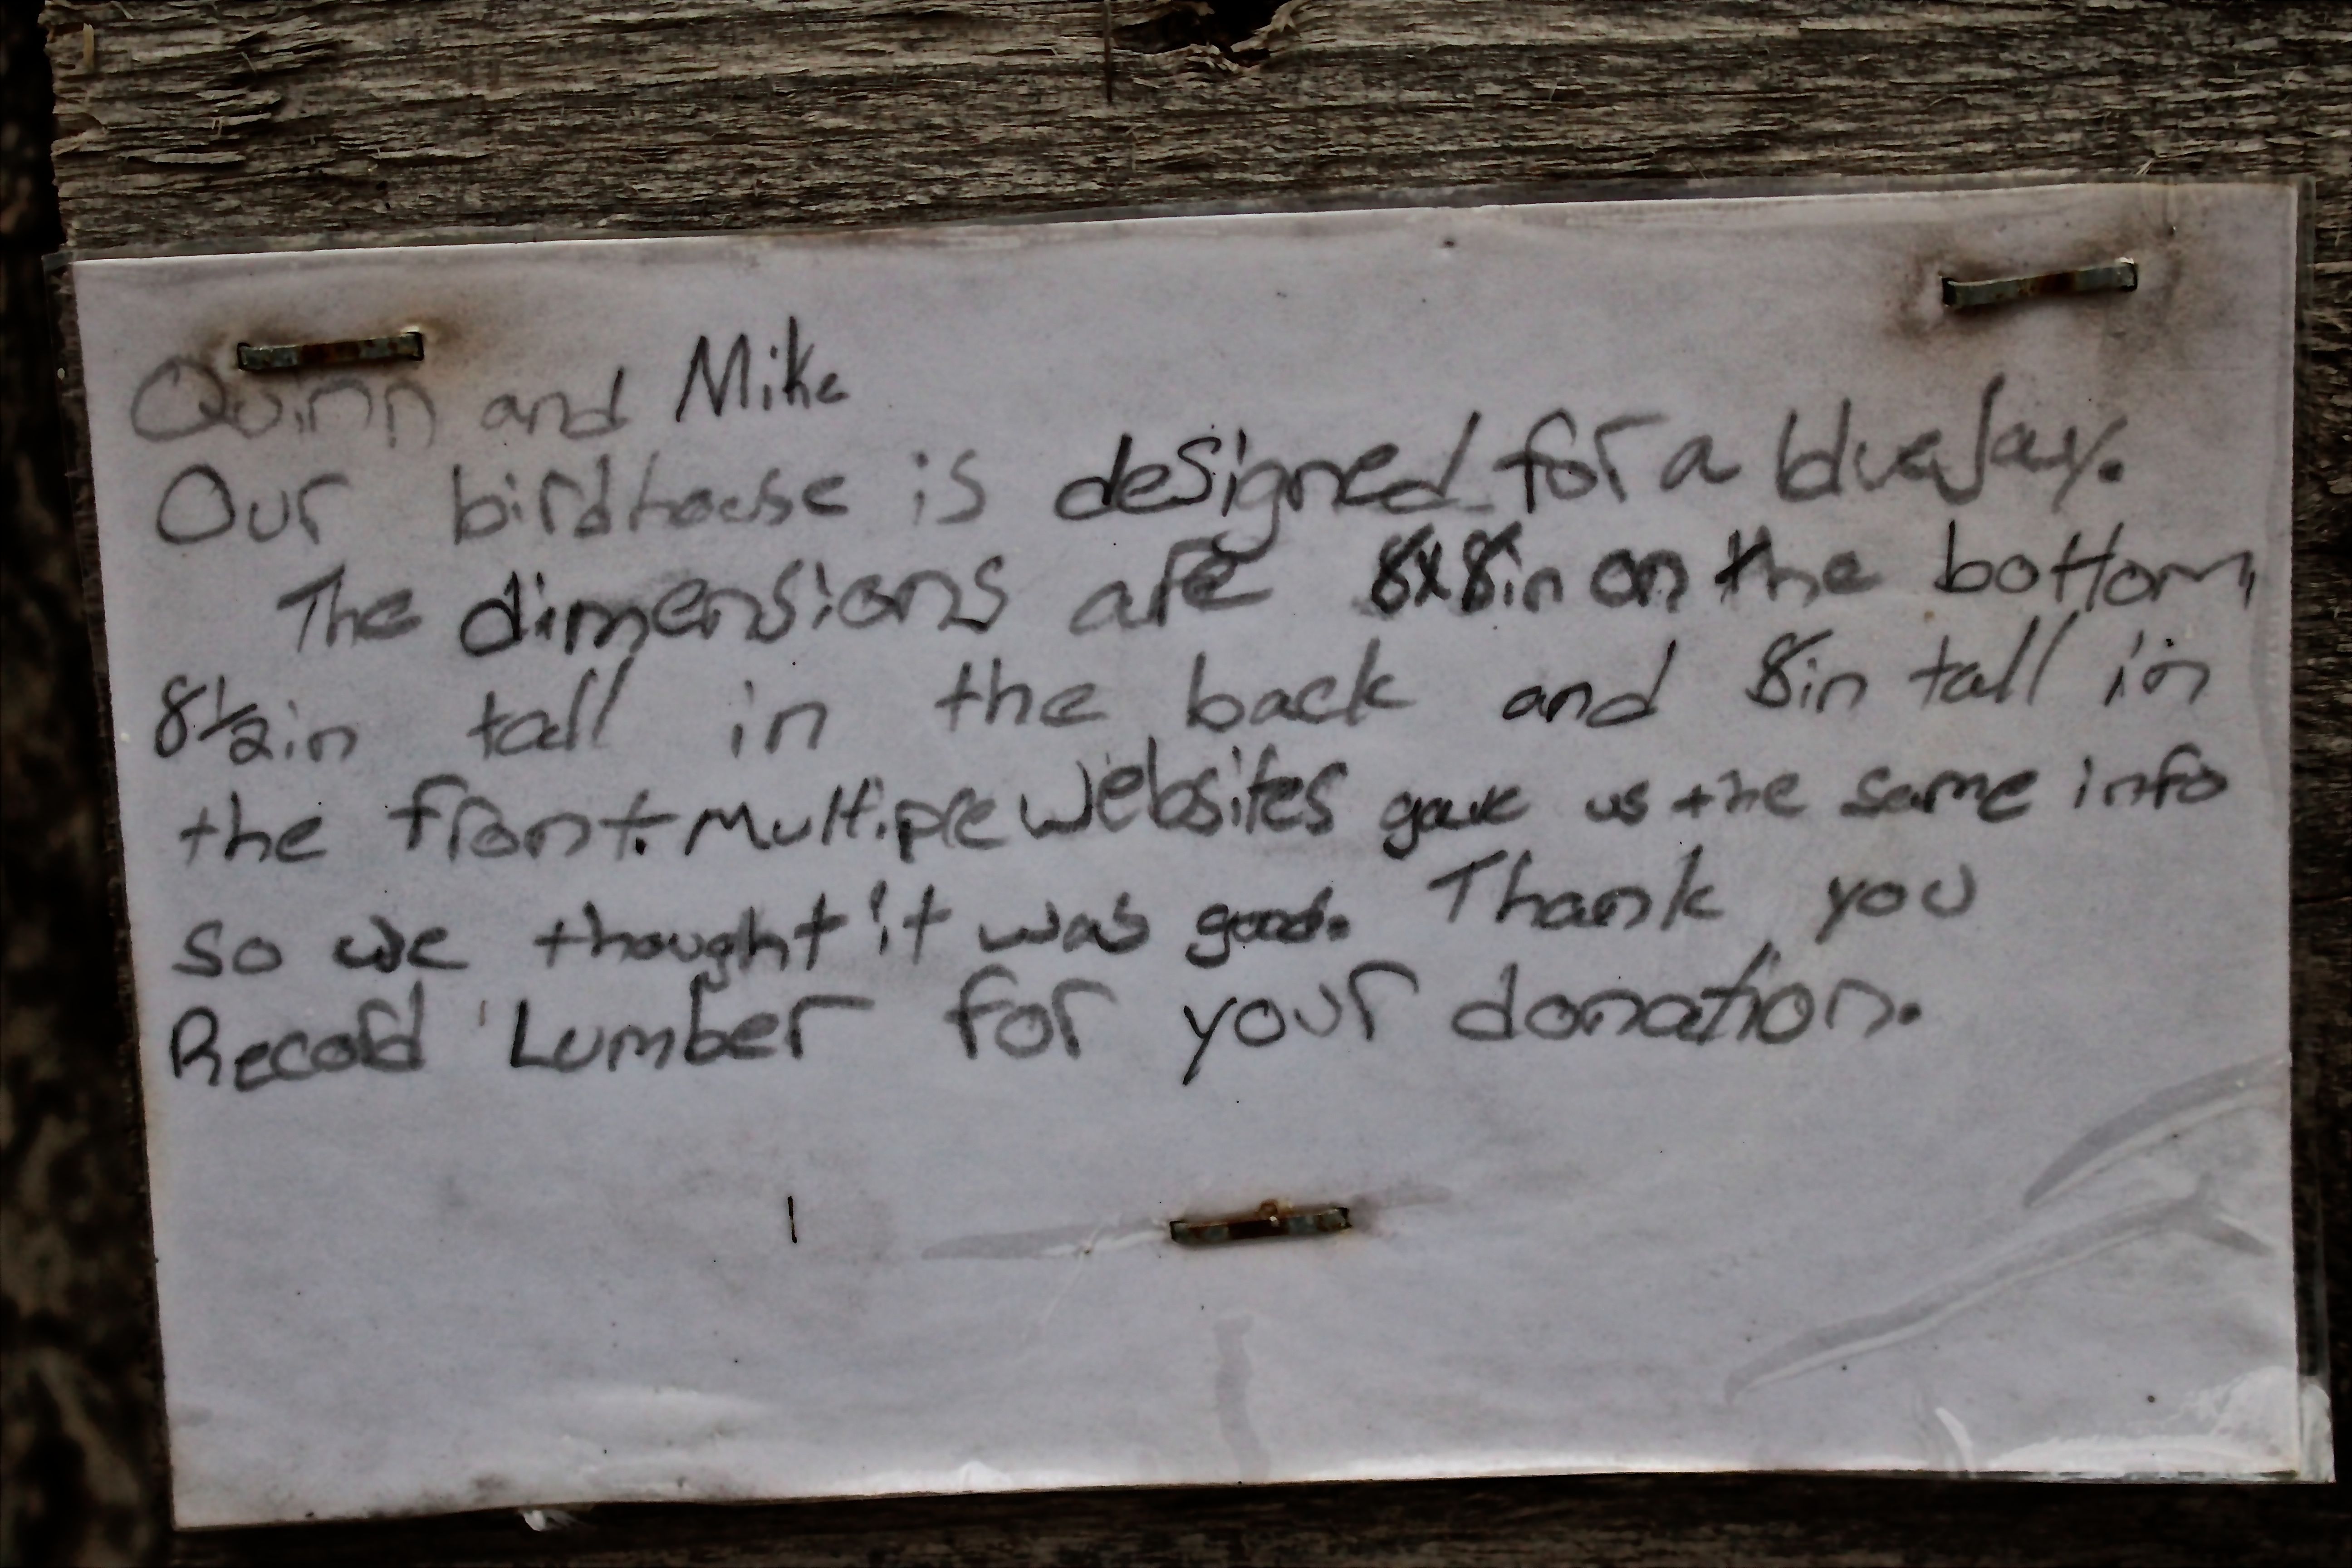 Quinn and Mike
Our birdhouse is designed for a blueJay.
The dimensions are 8x8in on the bottom,
8½in tall in the back and 8in tall in
the front. Multiple websites gave us the same info
so we thought it was good. Thank you
Record Lumber for your donation.